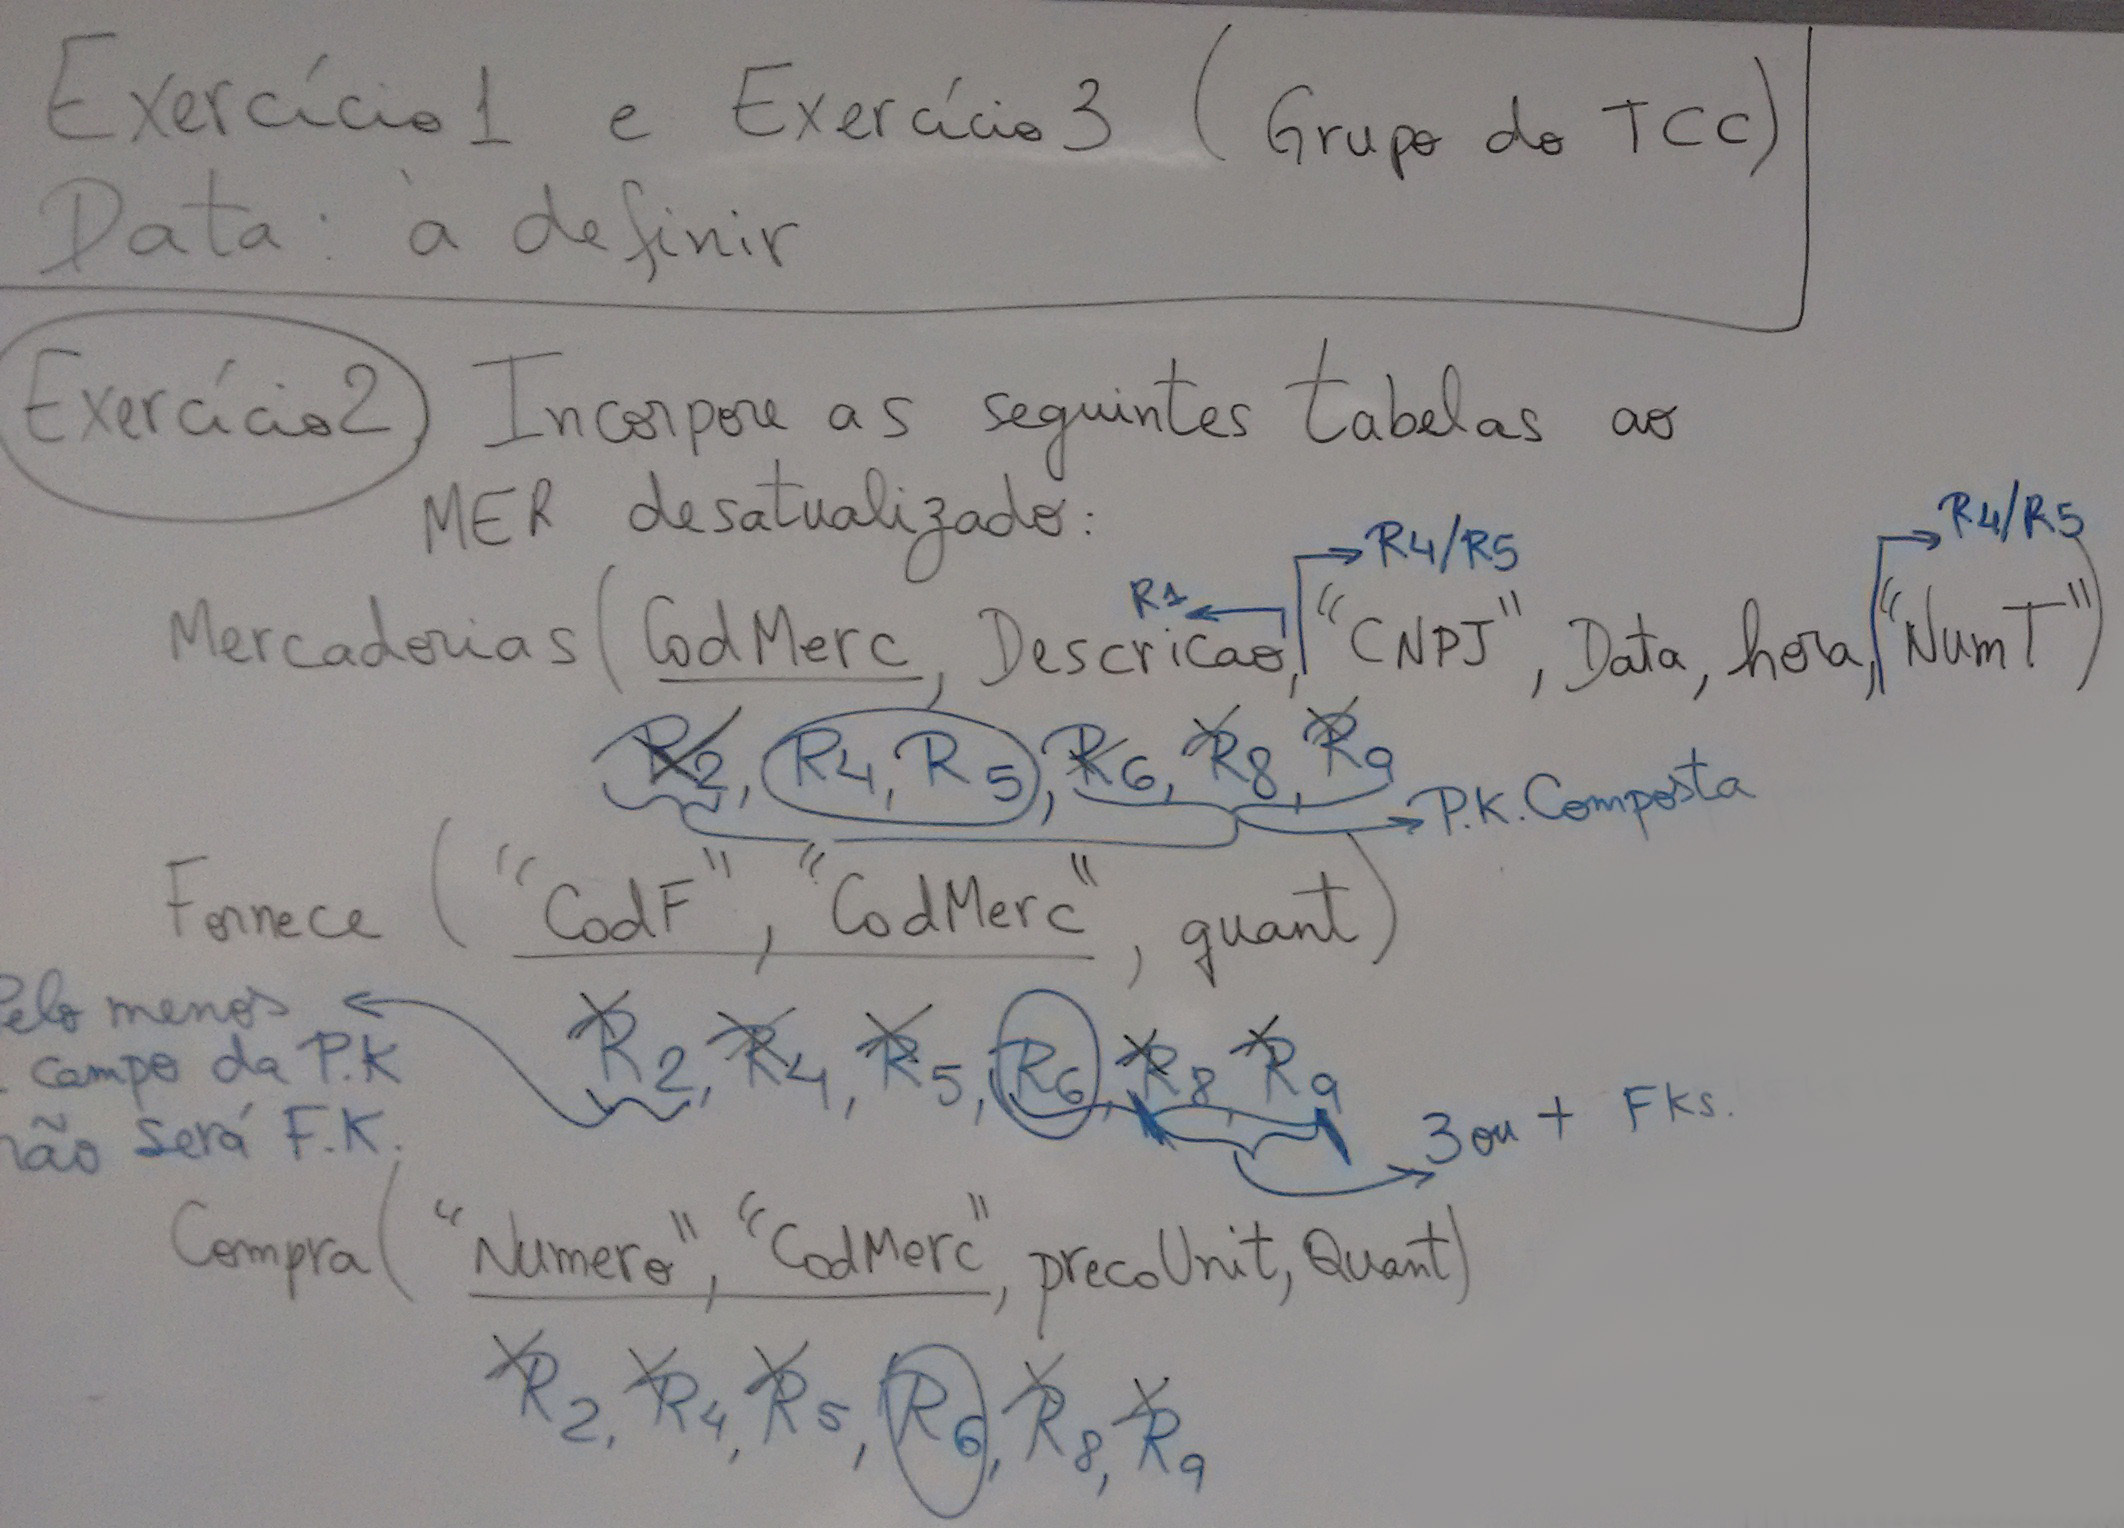 Exercício 1 e Exercício 3 (Grupo do TCC)
Data: à definir
Exercício 2) Incorpore as seguintes tabelas ao
MER desatualizado:
R1 R4/R5 R4/R5
Mercadorias (CodMerc, Descricao, "CNPJ", Data, hora, "NumT")
R2, R4, R5, R6, R8, R9
P.K. Composta
Fornece ("CodF", "CodMerc", quant)
Pelo menos
campo da P.K
não será F.K.
R2, R4, R5, R6, R8, R9
3 ou + FKs.
Compra ("Numero", "CodMerc", precoUnit, Quant)
R2, R4, R5, R6, R8, R9